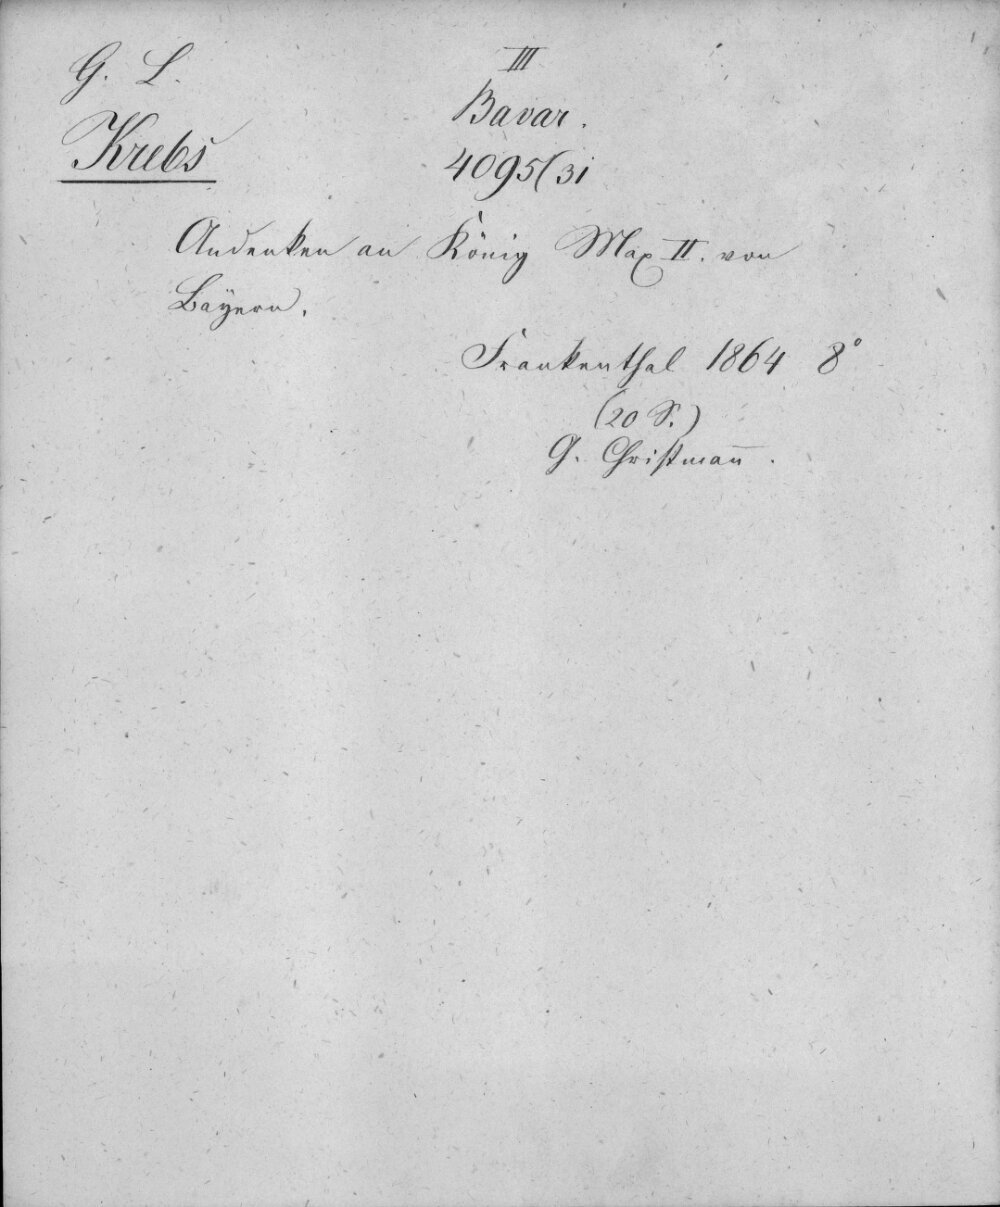 G. L.
Krebs
III
Bavar.
4095(31
Andenken an König Max II. von
Bayern.
Frankenthal 1864 8°
(20 S.)
G. Christman̄.